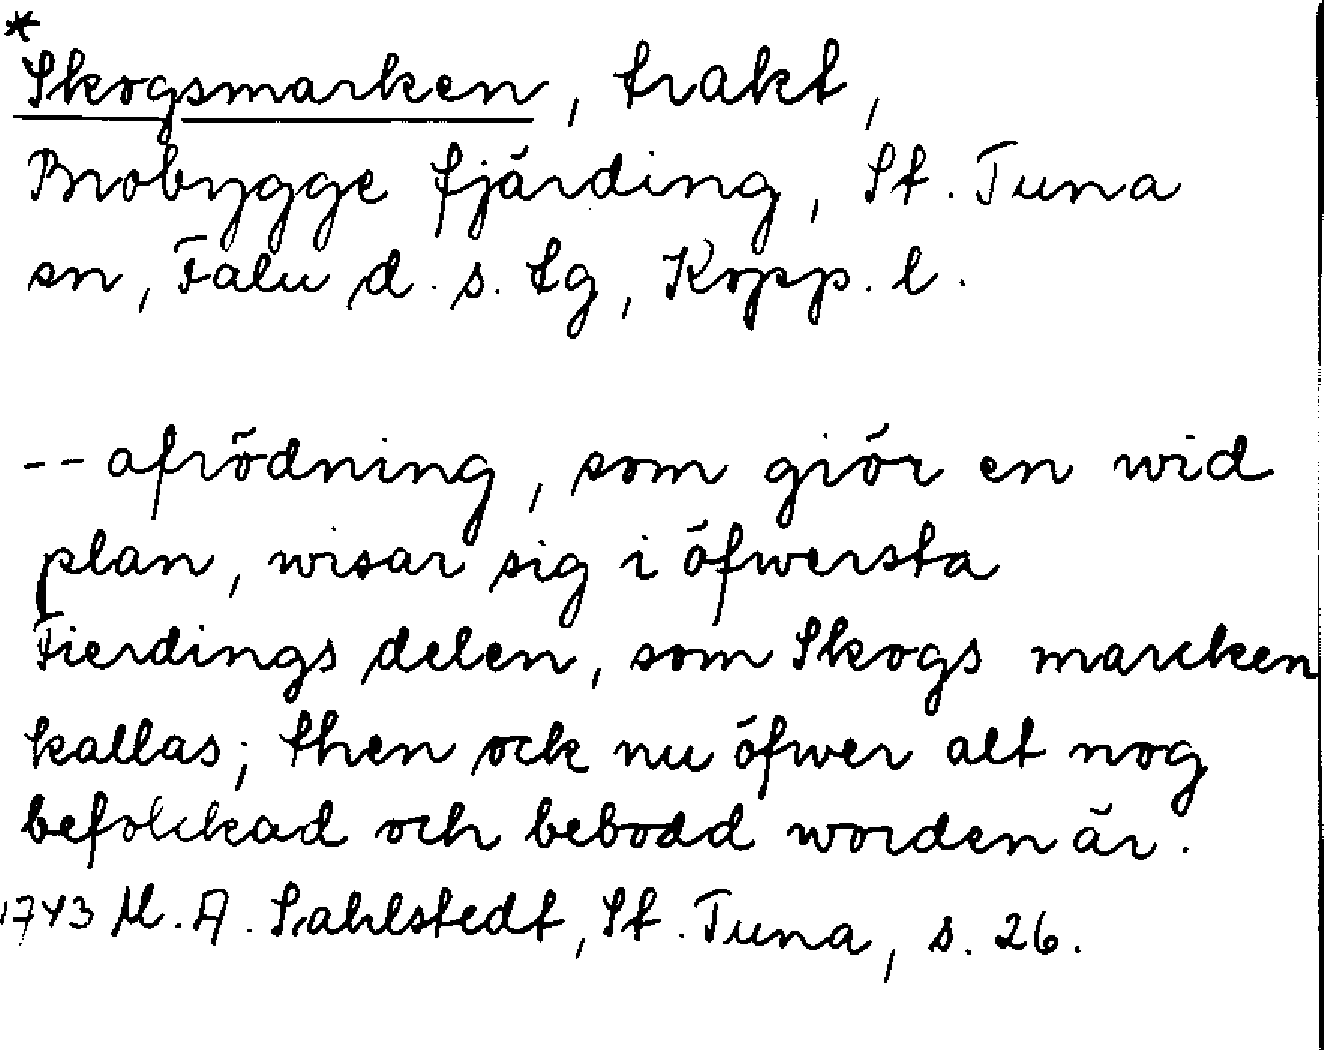 *
Skogsmarken, trakt,
Brobygge fjärding, St. Tuna
sn, Falu d. s. tg, Kopp. l.
-- afrödning, som giör en wid
plan, wisar sig i öfwersta
Fierdings delen, som Skogs marcken
kallas; then ock nu öfwer alt nog
befolckad och bebodd worden är.
1743 M. A. Sahlstedt, St. Tuna, s. 26.